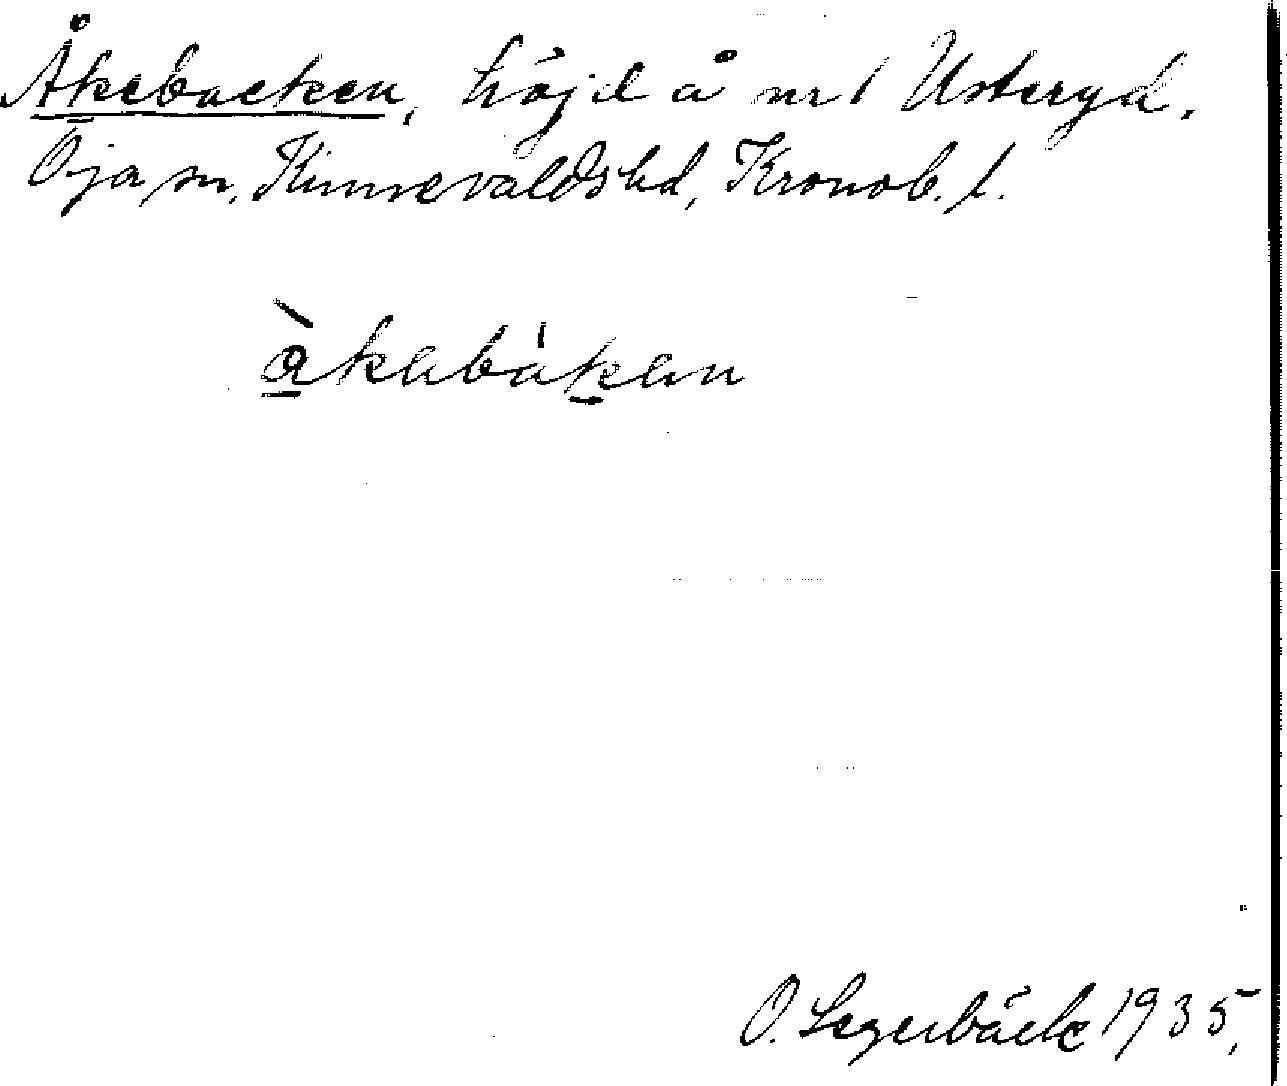 Åkebacken, höjd å nr 1 Usteryd.
Öja sn, Kinnevalds hd, Kronob. l.
åkabakan
O. Segerbäck 1935.